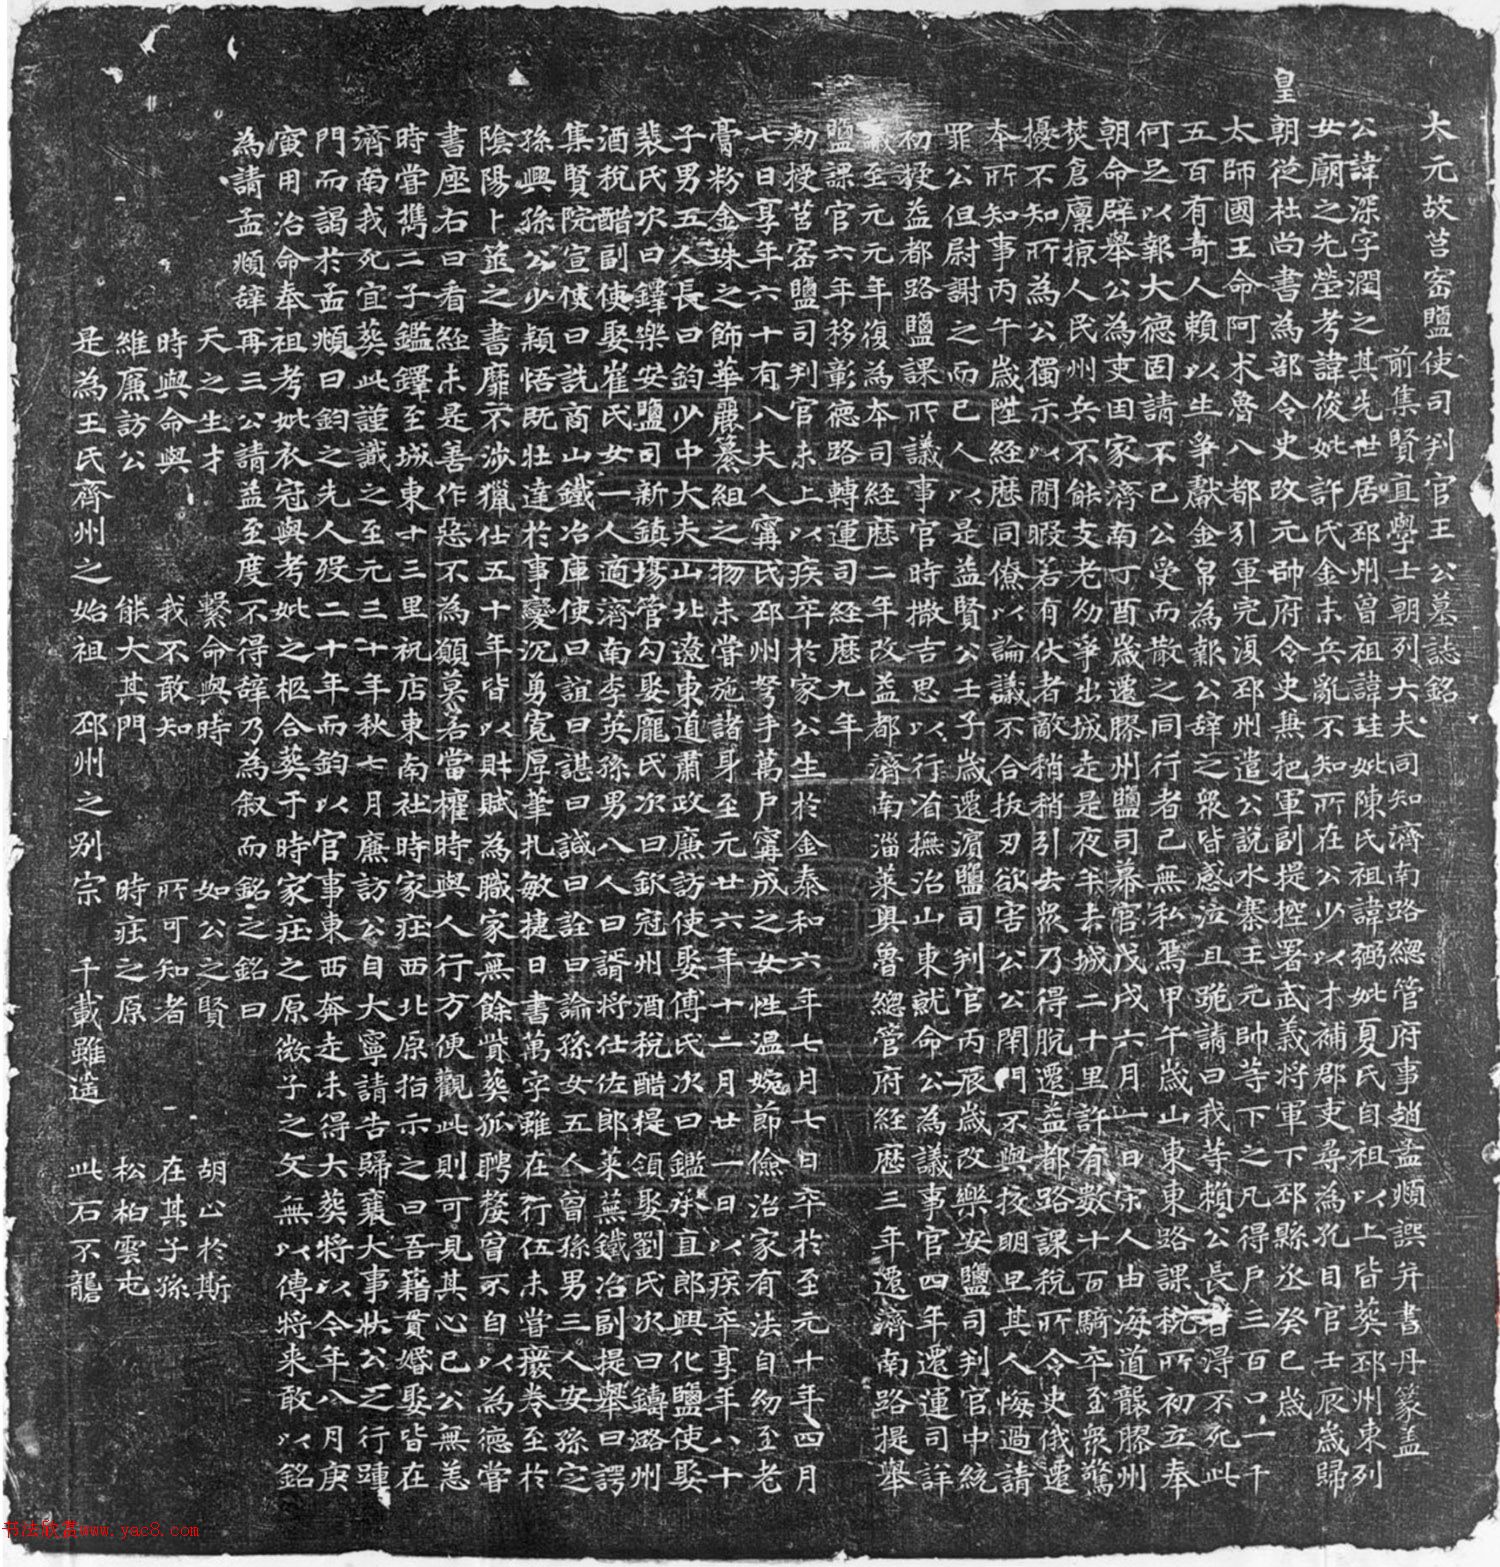 大元故莒密鹽使司判官王公墓誌銘
前集賢直學士朝列大夫同知濟南路總管府事趙孟頫譔并書丹篆蓋
公諱深字潤之其先世居邳州曾祖諱珪妣陳氏祖諱弼妣夏氏自祖以上皆葬邳州東列
女廟之先塋考諱俊妣許氏金末兵亂不知所在公少以才補郡吏尋為孔目官壬辰歲歸
皇
朝從杜尚書為部令史改元帥府令史兼把軍副提控署武義將軍下邳縣丞癸巳歲
太師國王命阿朮魯八都引軍完復邳州遣公說水寨主元帥等下之凡得戶三百口一千
五百有奇人賴以生爭獻金帛為報公辞之衆皆感泣且跪請曰我等賴公長者得不死此
何足以報大德固請不已公受而散之同行者已無私焉甲午歲山東東路課稅所初立奉
朝命辟舉公為吏因家濟南丁酉歲遷膠州鹽司幕官戊戌六月一日宋人由海道襲膠州
焚倉廩掠人民州兵不能支老幼爭出城走是夜半去城二十里許有數十百騎卒至衆驚
擾不知所為公獨示以閒暇若有伏者敵稍稍引去衆乃得脫遷益都路課稅所令史俄遷
本所知事丙午歲陞經歷同僚以論議不合拔刃欲害公公閉門不與挍明旦其人悔過請
罪公但尉謝之而已人以是益賢公壬子歲遷濱鹽司判官丙辰歲改樂安鹽司判官中統
初授益都路鹽課所議事官時撒吉思以行省撫治山東就命公為議事官四年遷運司詳
議至元元年復為本司經歷二年改益都濟南淄萊興魯總管府經歷三年遷濟南路提舉
鹽課官六年移彰德路轉運司經歷九年
勑授莒密鹽司判官未上以疾卒於家公生於金泰和六年七月七日卒於至元十年四月
七日享年六十有八夫人甯氏邳州弩手萬戶甯成之女性溫婉節儉治家有法自幼至老
膏粉金珠之飾華麗纂組之物未嘗施諸身至元廿六年十二月廿一日以疾卒享年八十
子男五人長曰鈞少中大夫山北遼東道肅政廉訪使娶傅氏次曰鑑承直郎興化鹽使娶
裴氏次曰鐸樂安鹽司新鎮場管勾娶龐氏次曰欽冠州酒稅醋提領娶劉氏次曰鑄潞州
酒稅醋副使娶崔氏女一人適濟南李英孫男八人曰諝將仕佐郎萊蕪鐵冶副提舉曰諤
集賢院宣使曰詵商山鐵冶庫使曰誼曰諶曰誠曰詮曰論孫女五人曾孫男三人安孫定
孫興孫公少穎悟既壯達於事變沉勇寬厚筆札敏捷日書萬字雖在行伍未嘗癈卷至於
陰陽卜筮之書靡不涉獵仕五十年皆以財賦為職家無餘貲葬孤聘嫠曾不自以為德嘗
書座右曰看經未是善作惡不為願莫若當權時與人行方便觀此則可見其心已公無恙
時嘗擕二子鑑鐸至城東十三里祝店東南社時家莊西北原指示之曰吾籍貫婚娶皆在
濟南我死宜葬此謹識之至元三十年秋七月廉訪公自大寧請告歸襄大事狀公之行踵
門而謁於孟頫曰鈞之先人歿二十年而鈞以官事東西奔走未得大葬將以今年八月庚
寅用治命奉祖考妣衣冠與考妣之柩合葬于時家莊之原微子之文無以傳將来敢以銘
為請孟頫辞再三公請益至度不得辞乃為叙而銘之銘曰
天之生才　繫命與時　如公之賢　胡止於斯
時與命與　我不敢知　所可知者　在其子孫
維廉訪公　能大其門　時莊之原　松柏雲屯
是為王氏齊州之始祖　邳州之别宗　千載雖遥　此石不騫
书法欣赏www.yac8.com